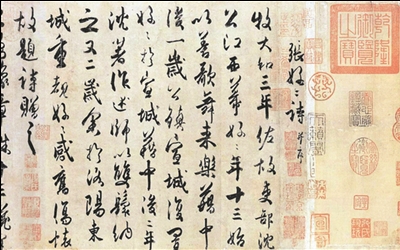 乾隆御覽之寶
張好々詩 并序
牧大和三年佐故吏部沈
公江西幕好々年十三始
以善歌舞來樂籍中
後一歲公鎮宣城復置
好々於宣城籍中後二年
沈著作述師以雙鬟納
之又二歲余於洛陽東
城重覩好々感舊傷懷
故題詩贈之